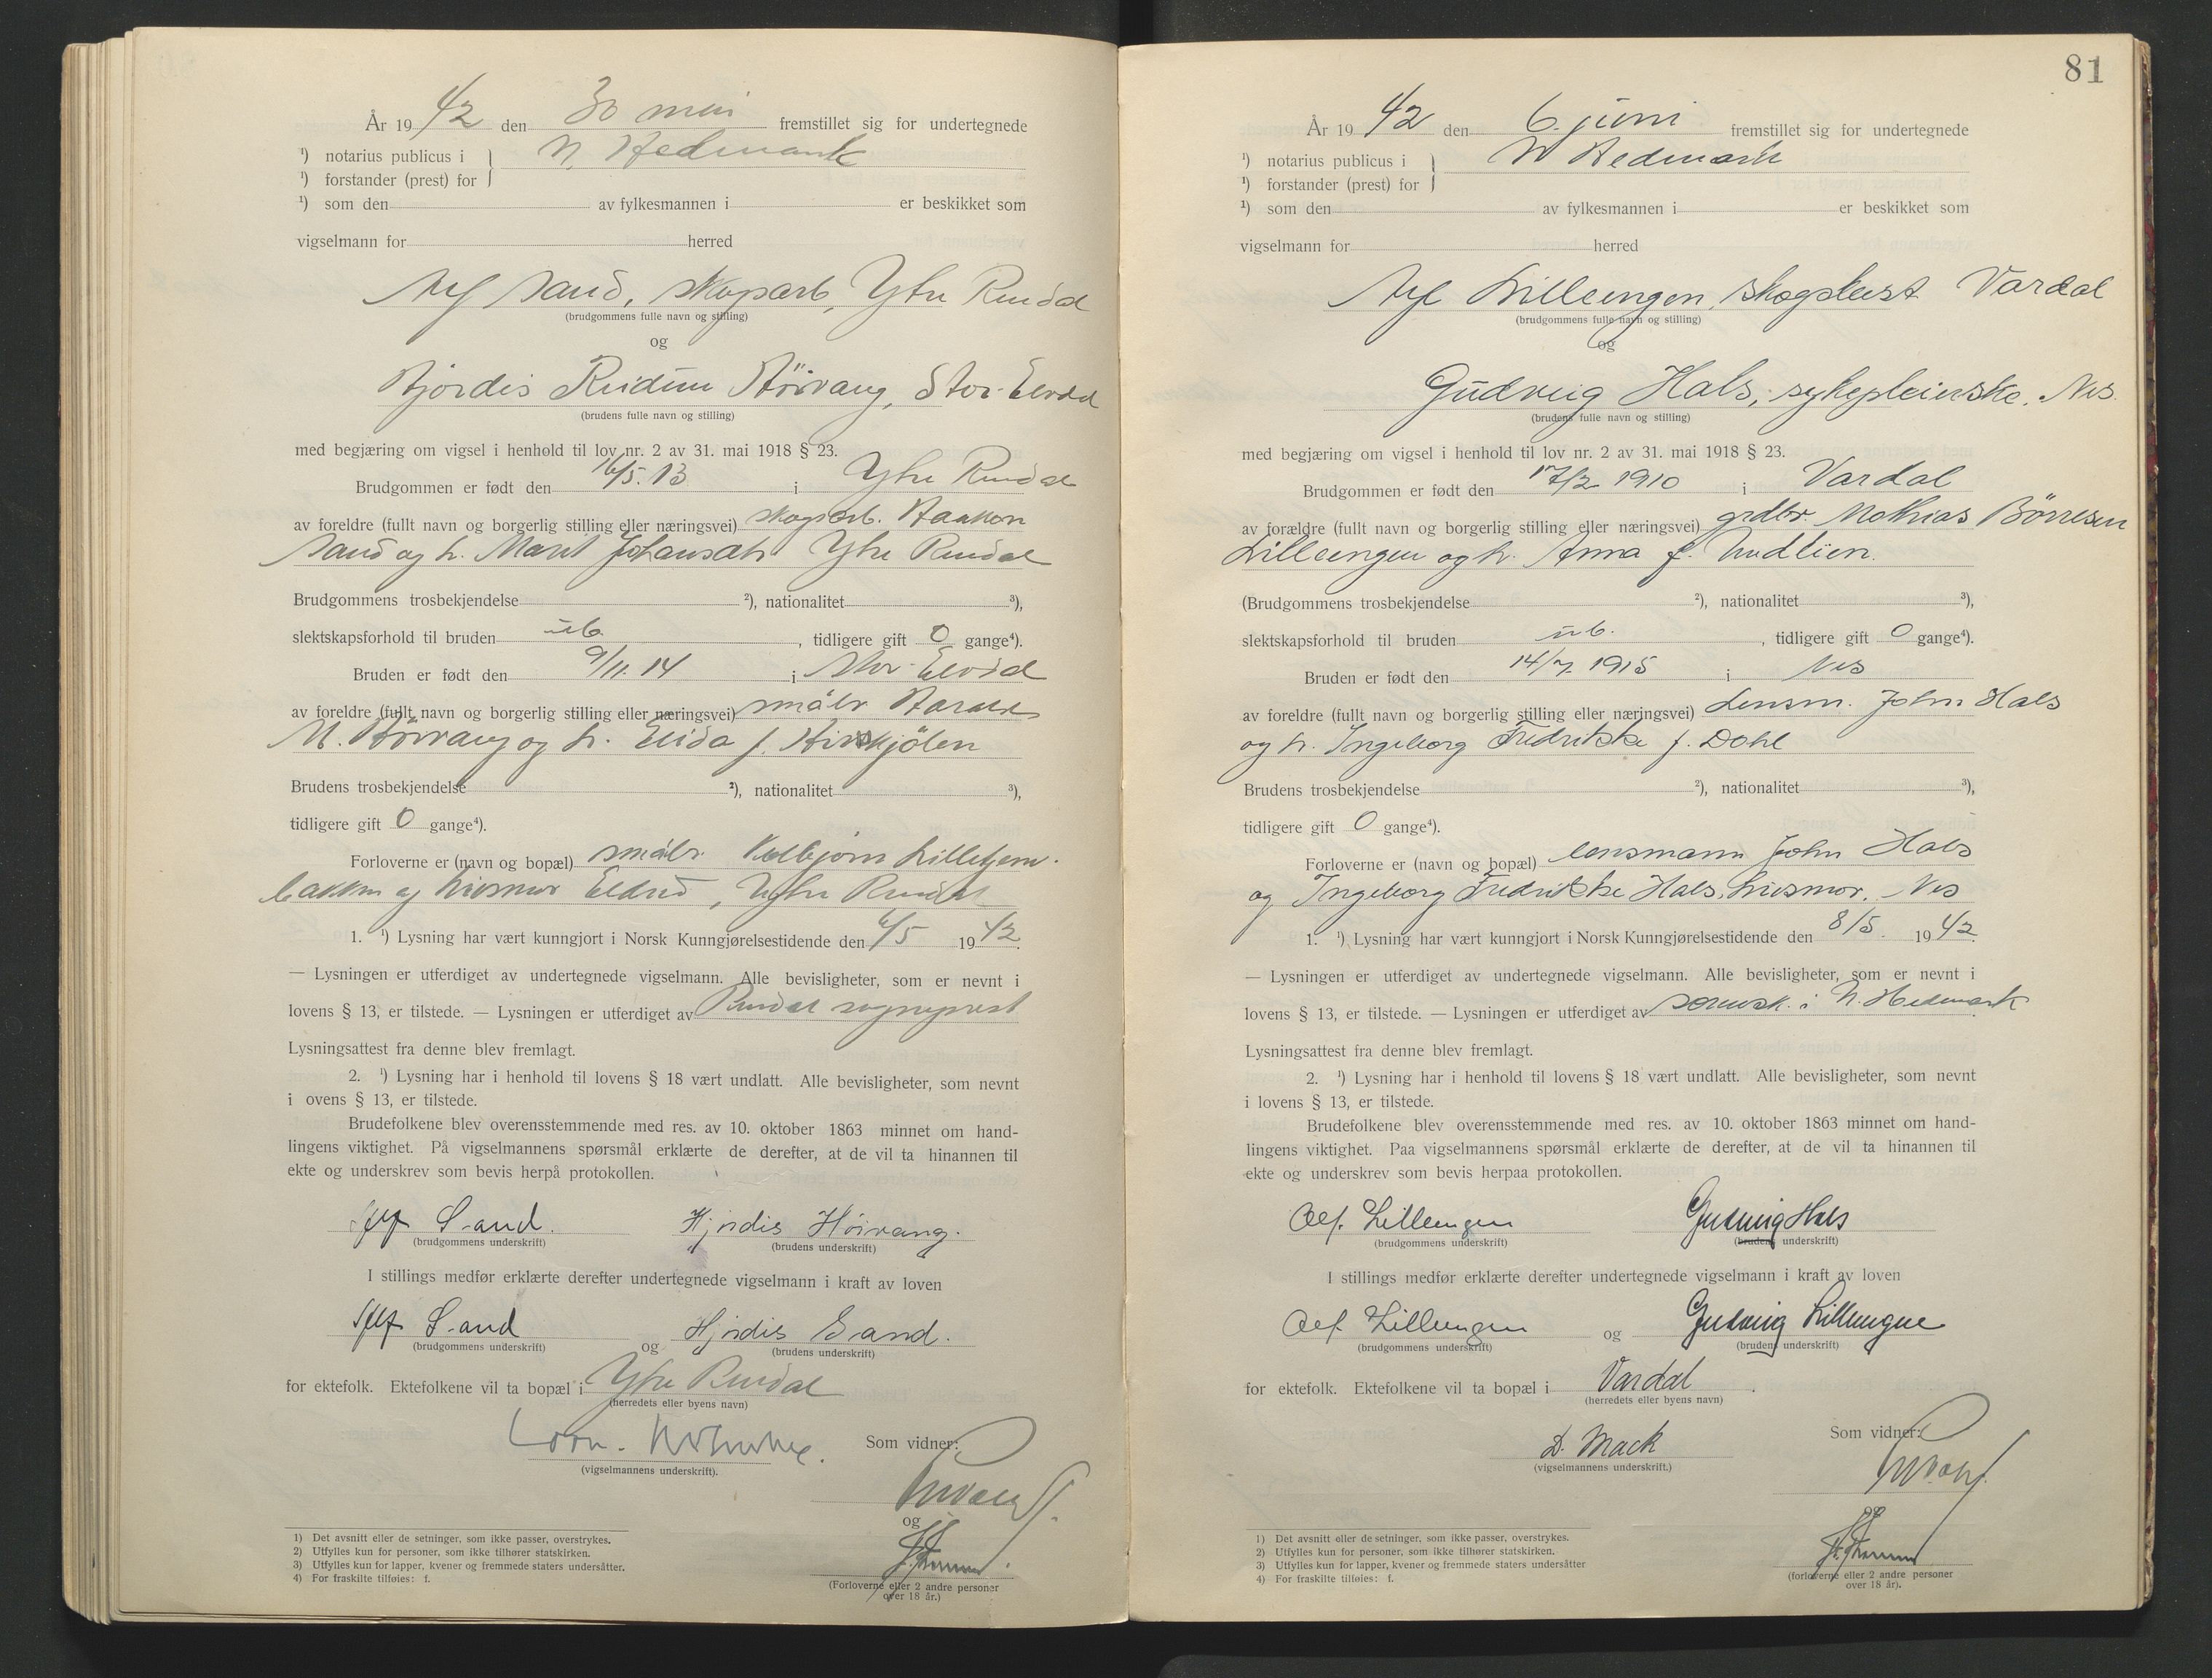 År 1942 den 30 mai fremstillet sig for undertegnede
¹) notarius publicus i } N. Hedmark
¹) forstander (prest) for
¹) som den av fylkesmannen i er beskikket som
vigselmann for herred
Alf Sand, skogsarb, Ytre Rendal
(brudgommens fulle navn og stilling)
og
Hjördis Reidun Höivang, Stor-Elvdal
(brudens fulle navn og stilling)
med begjæring om vigsel i henhold til lov nr. 2 av 31. mai 1918 § 23.
Brudgommen er født den 16/5. 13 i Ytre Rendal
av foreldre (fullt navn og borgerlig stilling eller næringsvei) skogsarb. Haakon
Sand og h. Marit Johansdtr Ytre Rendal
Brudgommens trosbekjendelse ²), nationalitet ³),
slektskapsforhold til bruden ub. , tidligere gift 0 gange⁴).
Bruden er født den 9/11. 14 i Stor-Elvdal
av foreldre (fullt navn og borgerlig stilling eller næringsvei) småbr. Harald
M. Höivang og h. Elida f. Kirkjölen
Brudens trosbekjendelse ²), nationalitet ³),
tidligere gift 0 gange⁴).
Forloverne er (navn og bopæl) småbr. Kolbjörn Lilletjern-
bakken og husmor Eldrid, Ytre Rendal
1. ¹) Lysning har vært kunngjort i Norsk Kunngjørelsestidende den 6/5 1942.
— Lysningen er utferdiget av undertegnede vigselmann. Alle bevisligheter, som er nevnt i
lovens § 13, er tilstede. — Lysningen er utferdiget av Rendal sogneprest
Lysningsattest fra denne blev fremlagt.
2. ¹) Lysning har i henhold til lovens § 18 vært undlatt. Alle bevisligheter, som nevnt
i ovens § 13, er tilstede.
Brudefolkene blev overensstemmende med res. av 10. oktober 1863 minnet om hand-
lingens viktighet. På vigselmannens spørsmål erklærte de derefter, at de vil ta hinannen til
ekte og underskrev som bevis herpå protokollen.
Alf Sand. Hjördis Höivang.
(brudgommens underskrift) (brudens underskrift)
I stillings medfør erklærte derefter undertegnede vigselmann i kraft av loven
Alf Sand og Hjördis Sand.
(brudgommens underskrift) (brudens underskrift)
for ektefolk. Ektefolkene vil ta bopæl i Ytre Rendal
(herredets eller byens navn)
Som vidner:
(vigselmannens underskrift).
og
1) Det avsnitt eller de setninger, som ikke passer, overstrykes.
2) Utfylles kun for personer, som ikke tilhører statskirken.
3) Utfylles kun for lapper, kvener og fremmede staters undersåtter.
4) For fraskilte tilføies: f.
(Forloverne eller 2 andre personer
over 18 år.)
81
År 1942 den 6. juni fremstillet sig for undertegnede
¹) notarius publicus i } N Hedmark
¹) forstander (prest) for
¹) som den av fylkesmannen i er beskikket som
vigselmann for herred
Alf Lilleengen, skogskast Vardal
(brudgommens fulle navn og stilling)
og
Gudveig Hals, sykepleierske. Nes.
(brudens fulle navn og stilling)
med begjæring om vigsel i henhold til lov nr. 2 av 31. mai 1918 § 23.
Brudgommen er født den 17/2 1910 i Vardal
av forældre (fullt navn og borgerlig stilling eller næringsvei) grdbr. Mathias Börresen
Lilleengen og h. Anna f. Undlien.
(Brudgommens trosbekjendelse ²), nationalitet ³),
slektskapsforhold til bruden ub. , tidligere gift 0 gange⁴).
Bruden er født den 14/7 1915 i Nes
av foreldre (fullt navn og borgerlig stilling eller næringsvei) Lensm. John Hals
og h. Ingeborg Fredrikke f. Dahl
Brudens trosbekjendelse ²), nationalitet ³),
tidligere gift 0 gange⁴).
Forloverne er (navn og bopæl) lensmann John Hals
og Ingeborg Fredrikke Hals, husmor. Nes
1. ¹) Lysning har vært kunngjort i Norsk Kunngjørelsestidende den 8/5. 1942.
— Lysningen er utferdiget av undertegnede vigselmann. Alle bevisligheter, som er nevnt i
lovens § 13, er tilstede. — Lysningen er utferdiget av sorensk. i N. Hedemark
Lysningsattest fra denne blev fremlagt.
2. ¹) Lysning har i henhold til lovens § 18 vært undlatt. Alle bevisligheter, som nevnt
i lovens § 13, er tilstede.
Brudefolkene blev overensstemmende med res. av 10. oktober 1863 minnet om hand-
lingens viktighet. Paa vigselmannens spørsmål erklærte de derefter, at de vil ta hinannen til
ekte og underskrev som bevis herpaa protokollen.
Alf. Lilleengen Gudveig Hals
(brudgommens underskrift) (brudens underskrift)
I stillings medfør erklærte derefter undertegnede vigselmann i kraft av loven
Alf. Lilleengen og Gudveig Lilleengen
(brudgommens underskrift) (brudens underskrift)
for ektefolk. Ektefolkene vil ta bopæl i Vardal
(herredets eller byens navn)
D. Mack Som vidner:
(vigselmannens underskrift.)
og
1) Det avsnitt eller de setninger, som ikke passer, overstrykes.
2) Utfylles kun for personer, som ikke tilhører statskirken.
3) Utfylles kun for lapper, kvener og fremmede staters undersåtter
4) For fraskilte tilføies: f.
(forloverne eller 2 andre personer
over 18 år).